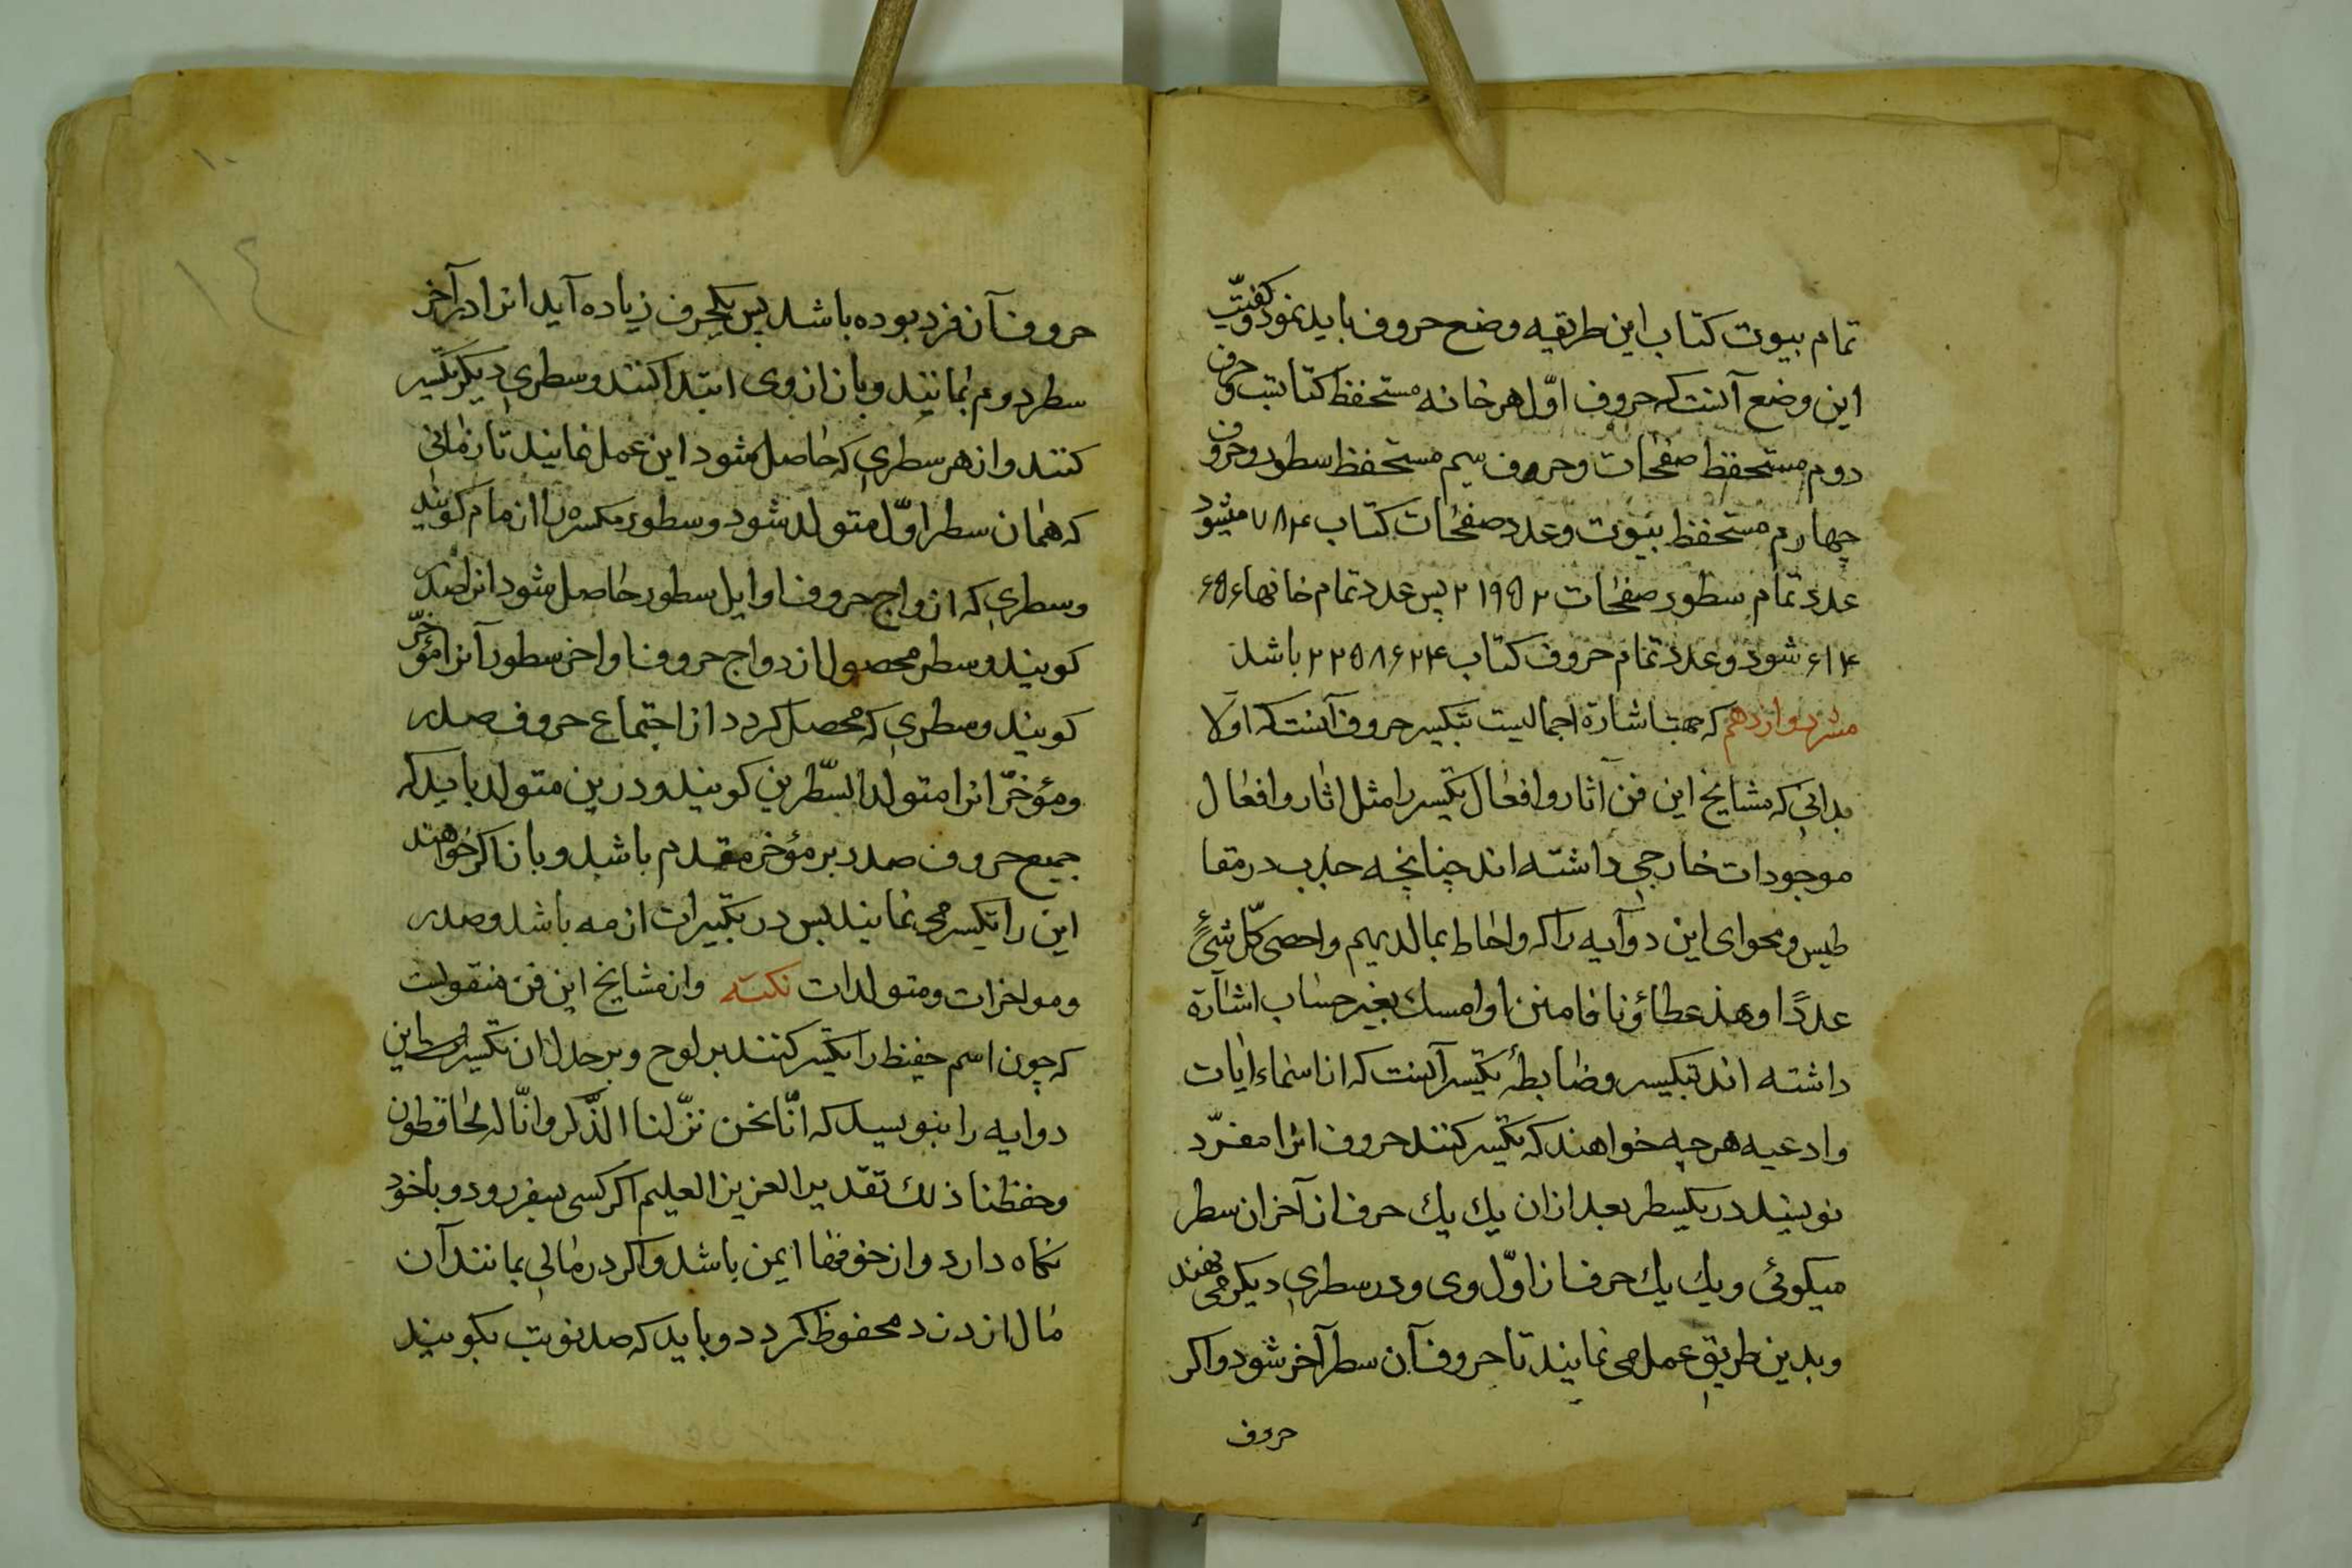 تمام بیوت کتاب این طریقه وضع حروف باید نمود و کیفیّت
این وضع آنست که حروف اوّل هر خانه مستحفظ کتابست و حروف
دوم مستحفظ صفحات و حروف سیم مستحفظ سطور و حروف
چهارم مستحفظ بیوت و عدد صفحات کتاب ۷۸۴ میشود
عدد تمام سطور صفحات ۲۱۹۵۲ پس عدد تمام خانهاء ۶۵۶
۶۱۴ شود و عدد تمام حروف کتاب ۲۲۵۸۶۲۴ باشد
دوازدهم که جهت اشارة اجمالیست بتکسیر حروف آنست که اولا
بدانی که مشایخ این فن آثار و افعال تکسیر را مثل اثار و افعال
موجودات خارجی داشته اند چنانچه جذب در مقنا
طیس و محوای این دو آیه را که و احاط بما لدیهم و احصی کلّ شئ
عددًا و هذا عطاؤنا فامنن او امسك بغیر حساب اشارة
داشته اند بتکسیر و ضابطهٔ تکسیر آنست که از اسماء ایات
و ادعیه هر چه خواهند که تکسیر کنند حروف انرا مفرّد
نویسند در یکسطر بعد ازان یك یك حرف از آخر ان سطر
میکوئی و یك یك حرف از اوّل وی و در سطری دیکر می نهند
و بدین طریق عمل می نمایند تا حروف آن سطر آخر شود و اکر
حروف
۱۰
۱۴
حروف آن فرد بوده باشد پس یکحرف زیاده آید انرا در آخر
سطر دوم بمانند و باز از وی ابتدا کنند و سطری دیکر تکسیر
کنند و از هر سطری که حاصل شود این عمل نمایند تا زمانی
که همان سطر اوّل متولد شود و سطور مکسره را ازمام کویند
و سطری که از واج حروف اوایل سطور حاصل شود انرا صدر
کویند و سطر محصول ازدواج حروف اواخر سطور آنرا مؤخّر
کویند و سطری که محصل کردد از اجتماع حروف صدر
و مؤخّر انرا متولد السّطرین کویند و درین متولد باید که
جمیع حروف صدر بر مؤخر مقدم باشد و باز اکر خواهند
این را تکسیر می نمایند پس در تکسیرات ازمه باشد و صدر
و مواخرات و متولدات نکته و از مشایخ این فن منقولست
که چون اسم حفیظ را تکسیر کنند بر لوح و بر جدل ان تکسیر این
دو ایه را بنویسید که انّا نحن نزّلنا الذّکر و انّا له لحافظون
و حفظنا ذلك تقدیر العزیز العلیم اکر کسی بسفر رود و با خود
نکاه دارد و از خوفها ایمن باشد و اکر در مالی بمانند آن
مال از دزد محفوظ کردد و باید که صد نوبت بکویند